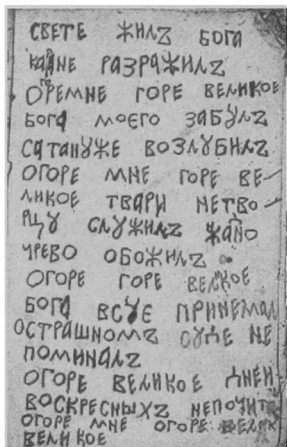 СВЕТЕ ЖИЛЪ БОГА
РАЗРАЖИЛЪ
ОГОРЕ МНЕ ГОРЕ ВЕЛИКОЕ
БОГА МОЕГО ЗАБУЛЪ
САТАНУЖЕ ВОЗЛУБИЛЪ
ОГОРЕ МНЕ ГОРЕ ВЕ
ЛИКОЕ ТВАРИ НЕТВО
РЦУ СЛУЖИЛЪ
ЧРЕВО ОБОЖИЛЪ
ОГОРЕ ГОРЕ ВЕЛКОЕ
БОГА ВСУЕ ПРИНЕМАЛ
ОСТРАШНОМЪ СУДЕ НЕ
ПОМИНАЛЪ
ОГОРЕ ВЕЛИКОЕ ДНЕИ
ВОСКРЕСНЫХЪ НЕПОЧИТА
ОГОРЕ МНЕ ОГОРЕ
ВЕЛИКОЕ